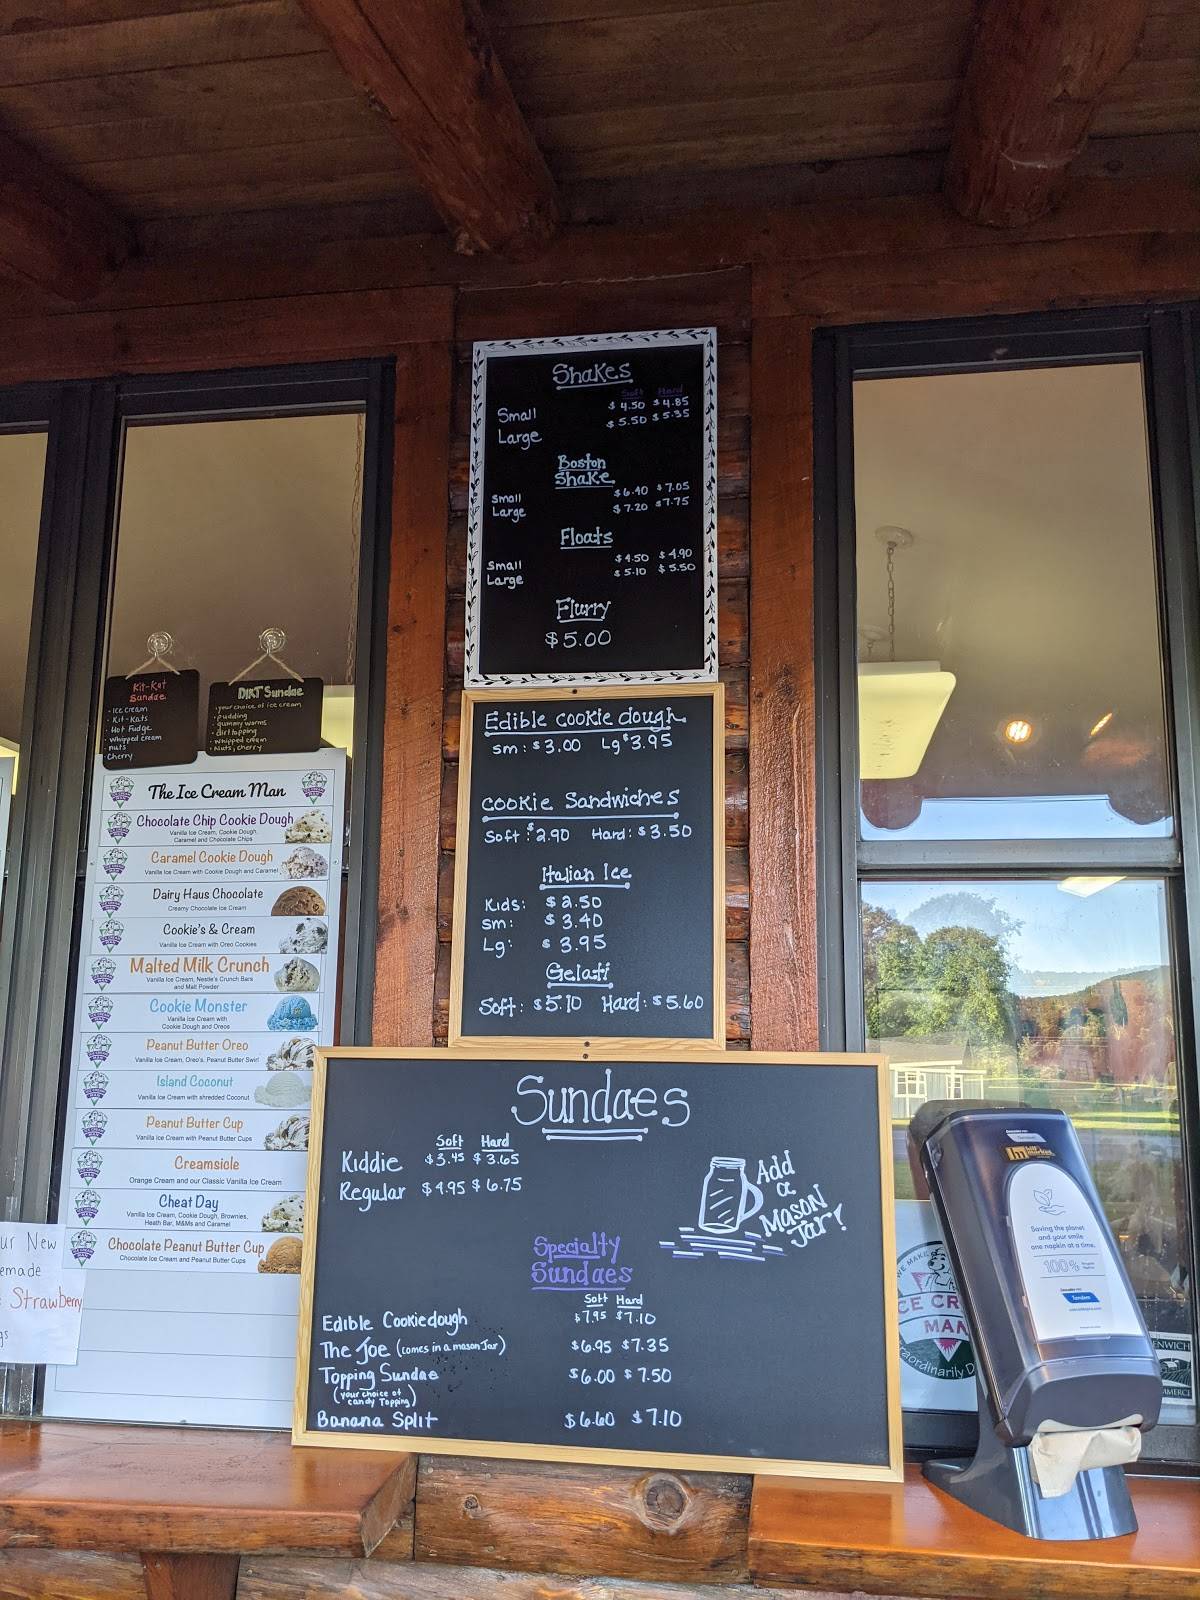 Shakes
Soft Hard
Small $4.50 $4.85
Large $5.50 $5.35
Boston
Shake
Small $6.40 $7.05
Large $7.20 $7.75
Floats
Small $4.50 $4.90
Large $5.10 $5.50
Flurry
$5.00
Edible cookie dough
Sm: $3.00 Lg $3.95
Cookie Sandwiches
Soft: $2.90 Hard: $3.50
Italian Ice
Kids: $2.50
Sm: $3.40
Lg: $3.95
Gelati
Soft: $5.10 Hard: $5.60
Sundaes
Soft Hard
Kiddie $3.45 $3.65
Regular $4.95 $6.75
Add
a
Mason
Jar!
Specialty
Sundaes
Soft Hard
Edible Cookiedough $7.95 $7.10
The Joe (comes in a mason Jar) $6.95 $7.35
Topping Sundae $6.00 $7.50
(your choice of
candy Topping)
Banana Split $6.60 $7.10
Kit-Kat
Sundae
· Ice cream
· Kit-Kats
· Hot Fudge
· Whipped cream
· nuts
· Cherry
DIRT Sundae
· your choice of ice cream
· pudding
· gummy worms
· dirt topping
· whipped cream
· Nuts, cherry
The Ice Cream Man
Chocolate Chip Cookie Dough
Vanilla Ice Cream, Cookie Dough,
Caramel and Chocolate Chips
Caramel Cookie Dough
Vanilla Ice Cream with Cookie Dough and Caramel
Dairy Haus Chocolate
Creamy Chocolate Ice Cream
Cookie's & Cream
Vanilla Ice Cream with Oreo Cookies
Malted Milk Crunch
Vanilla Ice Cream, Nestle's Crunch Bars
and Malt Powder
Cookie Monster
Vanilla Ice Cream with
Cookie Dough and Oreos
Peanut Butter Oreo
Vanilla Ice Cream, Oreo's, Peanut Butter Swirl
Island Coconut
Vanilla Ice Cream with shredded Coconut
Peanut Butter Cup
Vanilla Ice Cream with Peanut Butter Cups
Creamsicle
Orange Cream and our Classic Vanilla Ice Cream
Cheat Day
Vanilla Ice Cream, Cookie Dough, Brownies,
Heath Bar, M&Ms and Caramel
Chocolate Peanut Butter Cup
Chocolate Ice Cream and Peanut Butter Cups
ur New
emade
Strawberry
gs
Saving the planet
and your smile
one napkin at a time.
100%
WE MAKE
CE CR
MAN
raordinarily D
ENWICH
MERCE